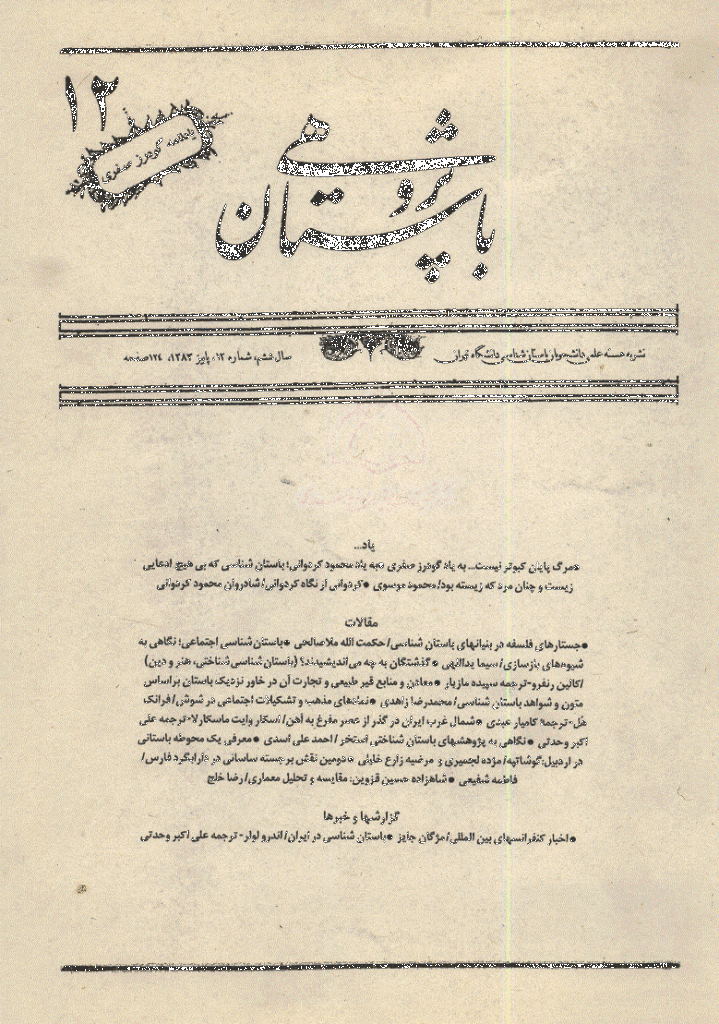 ۱۲
یادنامه گودرز صفری
باستان پژوهی
نشریه علمی دانشجویان باستان‌شناسی دانشگاه تهران
سال ششم، شماره ۱۲، پاییز ۱۳۸۳، ۱۲۴ صفحه
یاد...
●مرگ پایان کبوتر نیست... به یاد گودرز صفری ●به یاد محمود کردوانی؛ باستان شناسی که بی هیچ ادعایی
زیست و چنان مرد که زیسته بود/محمود موسوی ●کردوانی از نگاه کردوانی/شادروان محمود کردوانی
مقالات
●جستارهای فلسفه در بنیانهای باستان شناسی/حکمت الله ملاصالحی ●باستان شناسی اجتماعی؛ نگاهی به
شیوه‌های بازسازی/سیما یداللهی ● گذشتگان به چه می‌اندیشیدند؟ (باستان شناسی شناختی، هنر و دین)
/کالین رنفرو-ترجمه سپیده مازیار ●معادن و منابع قیر طبیعی و تجارت آن در خاور نزدیک باستان براساس
متون و شواهد باستان شناسی/محمدرضا زاهدی ●نمادهای مذهب و تشکیلات اجتماعی در شوش/فرانک
هل-ترجمه کامیار عبدی ●شمال غرب ایران در گذر از عصر مفرغ به آهن/اسکار وایت ماسکارلا-ترجمه علی
اکبر وحدتی ● نگاهی به پژوهشهای باستان شناختی استخر/احمد علی اسدی ●معرفی یک محوطه باستانی
در اردبیل:گوشاتپه/مژده لجمیری و مرضیه زارع خلیلی ●دومین نقش برجسته ساسانی در دارابگرد فارس/
فاطمه شفیعی ●شاهزاده حسین قزوین: مقایسه و تحلیل معماری/رضا خلج
گزارشها و خبرها
●اخبار کنفرانسهای بین المللی/مژگان جایز ●باستان شناسی در ایران/اندرو لوار- ترجمه علی اکبر وحدتی